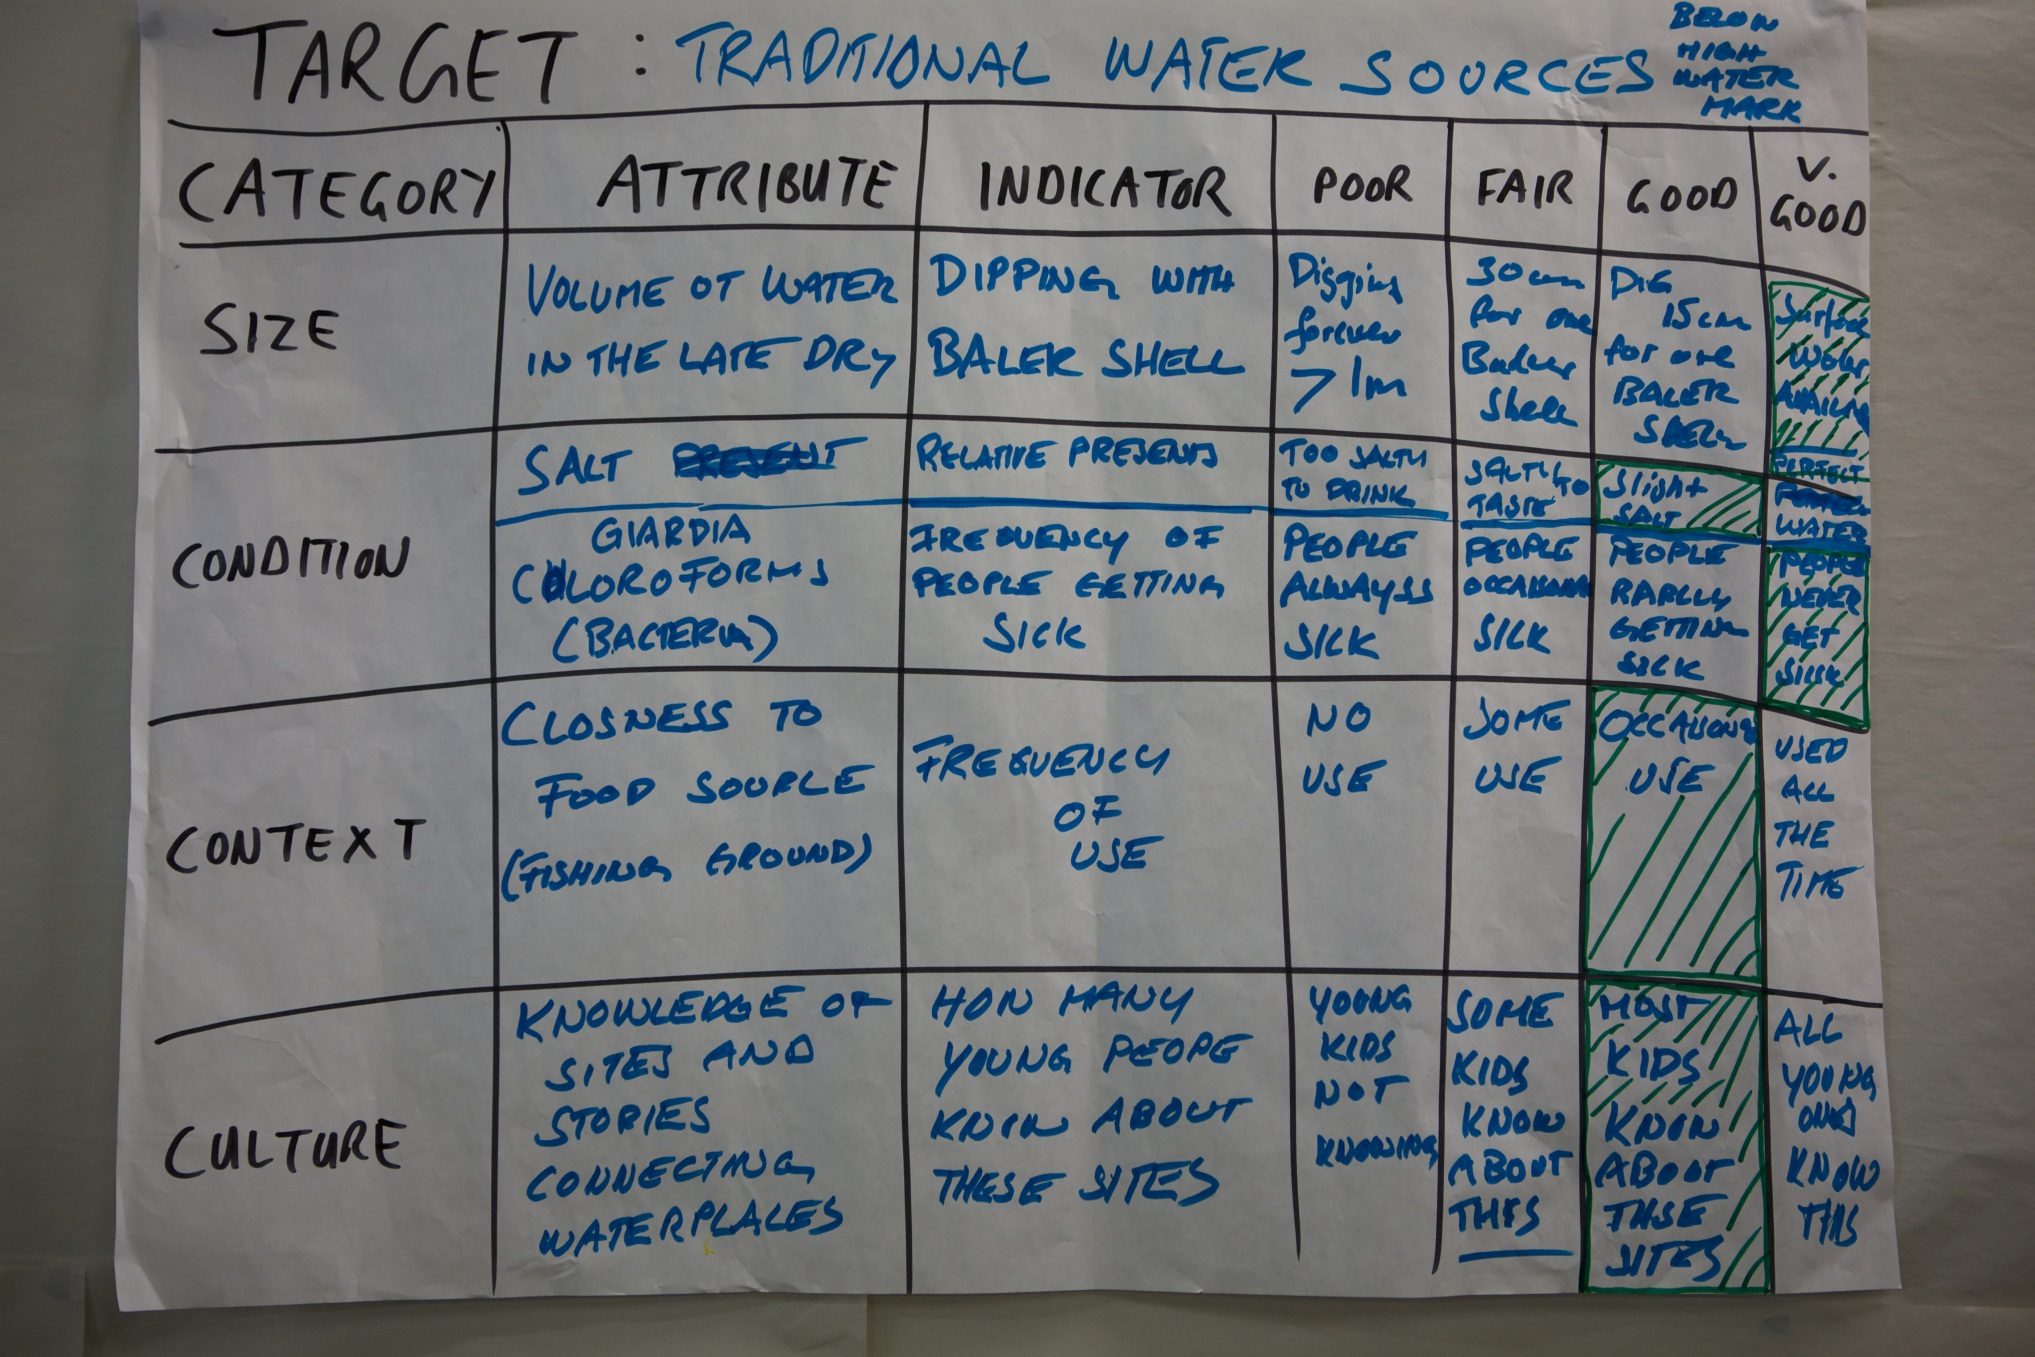 TARGET : TRADITIONAL WATER SOURCES
BELOW
HIGH
WATER
MARK
CATEGORY
ATTRIBUTE
INDICATOR
POOR
FAIR
GOOD
V.
GOOD
SIZE
VOLUME OT WATER
IN THE LATE DRY
DIPPING WITH
BALER SHELL
Digging
forever
> 1m
30cm
for one
Shell
DIG
15cm
for one
BALER
SHELL
Surface
CONDITION
SALT
RELATIVE PRESENTS
TOO SALTY
TO DRINK
SALTY TO
TASTE
Slight
SALT
PERFECT
WATER
GIARDIA
CHLOROFORMS
(BACTERIA)
FREQUENCY OF
PEOPLE GETTING
SICK
PEOPLE
ALWAYSS
SICK
PEOPLE
SICK
PEOPLE
GETTING
SICK
PEOPLE
NEVER
GET
SICK
CONTEXT
CLOSNESS TO
FOOD SOURCE
(FISHING GROUND)
FREQUENCY
OF
USE
NO
USE
SOME
USE
USE
USED
ALL
THE
TIME
CULTURE
KNOWLEDGE OF
SITES AND
STORIES
CONNECTING
WATERPLACES
HOW MANY
YOUNG PEOPE
KNOW ABOUT
THESE SITES
YOUNG
KIDS
NOT
KNOWING
SOME
KIDS
KNOW
ABOUT
THIS
MOST
KIDS
KNOW
ABOUT
THSE
SITES
ALL
YOUNG
ONES
KNOW
THIS